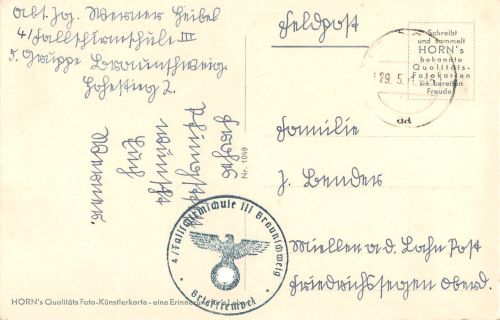 Abt. Jg. Werner Heibel
4/Fallschirmschule III
5. Gruppe Braunschweig.
Feldpost
Schreibt
und sammelt
HORN's
bekannte
Qualitäts-
Fotokarten
sie bereiten
Freude
29.5.
dd
Familie
J. Bender
Miellen a.d. Lahn Post
Friedrichssegen Oberd.
wünscht
Euch
Werner.
Nr. 1049
4/Fallschirmschule III Braunschweig
* Briefstempel *
HORN's Qualitäts Foto-Künstlerkarte - eine Erinnerung